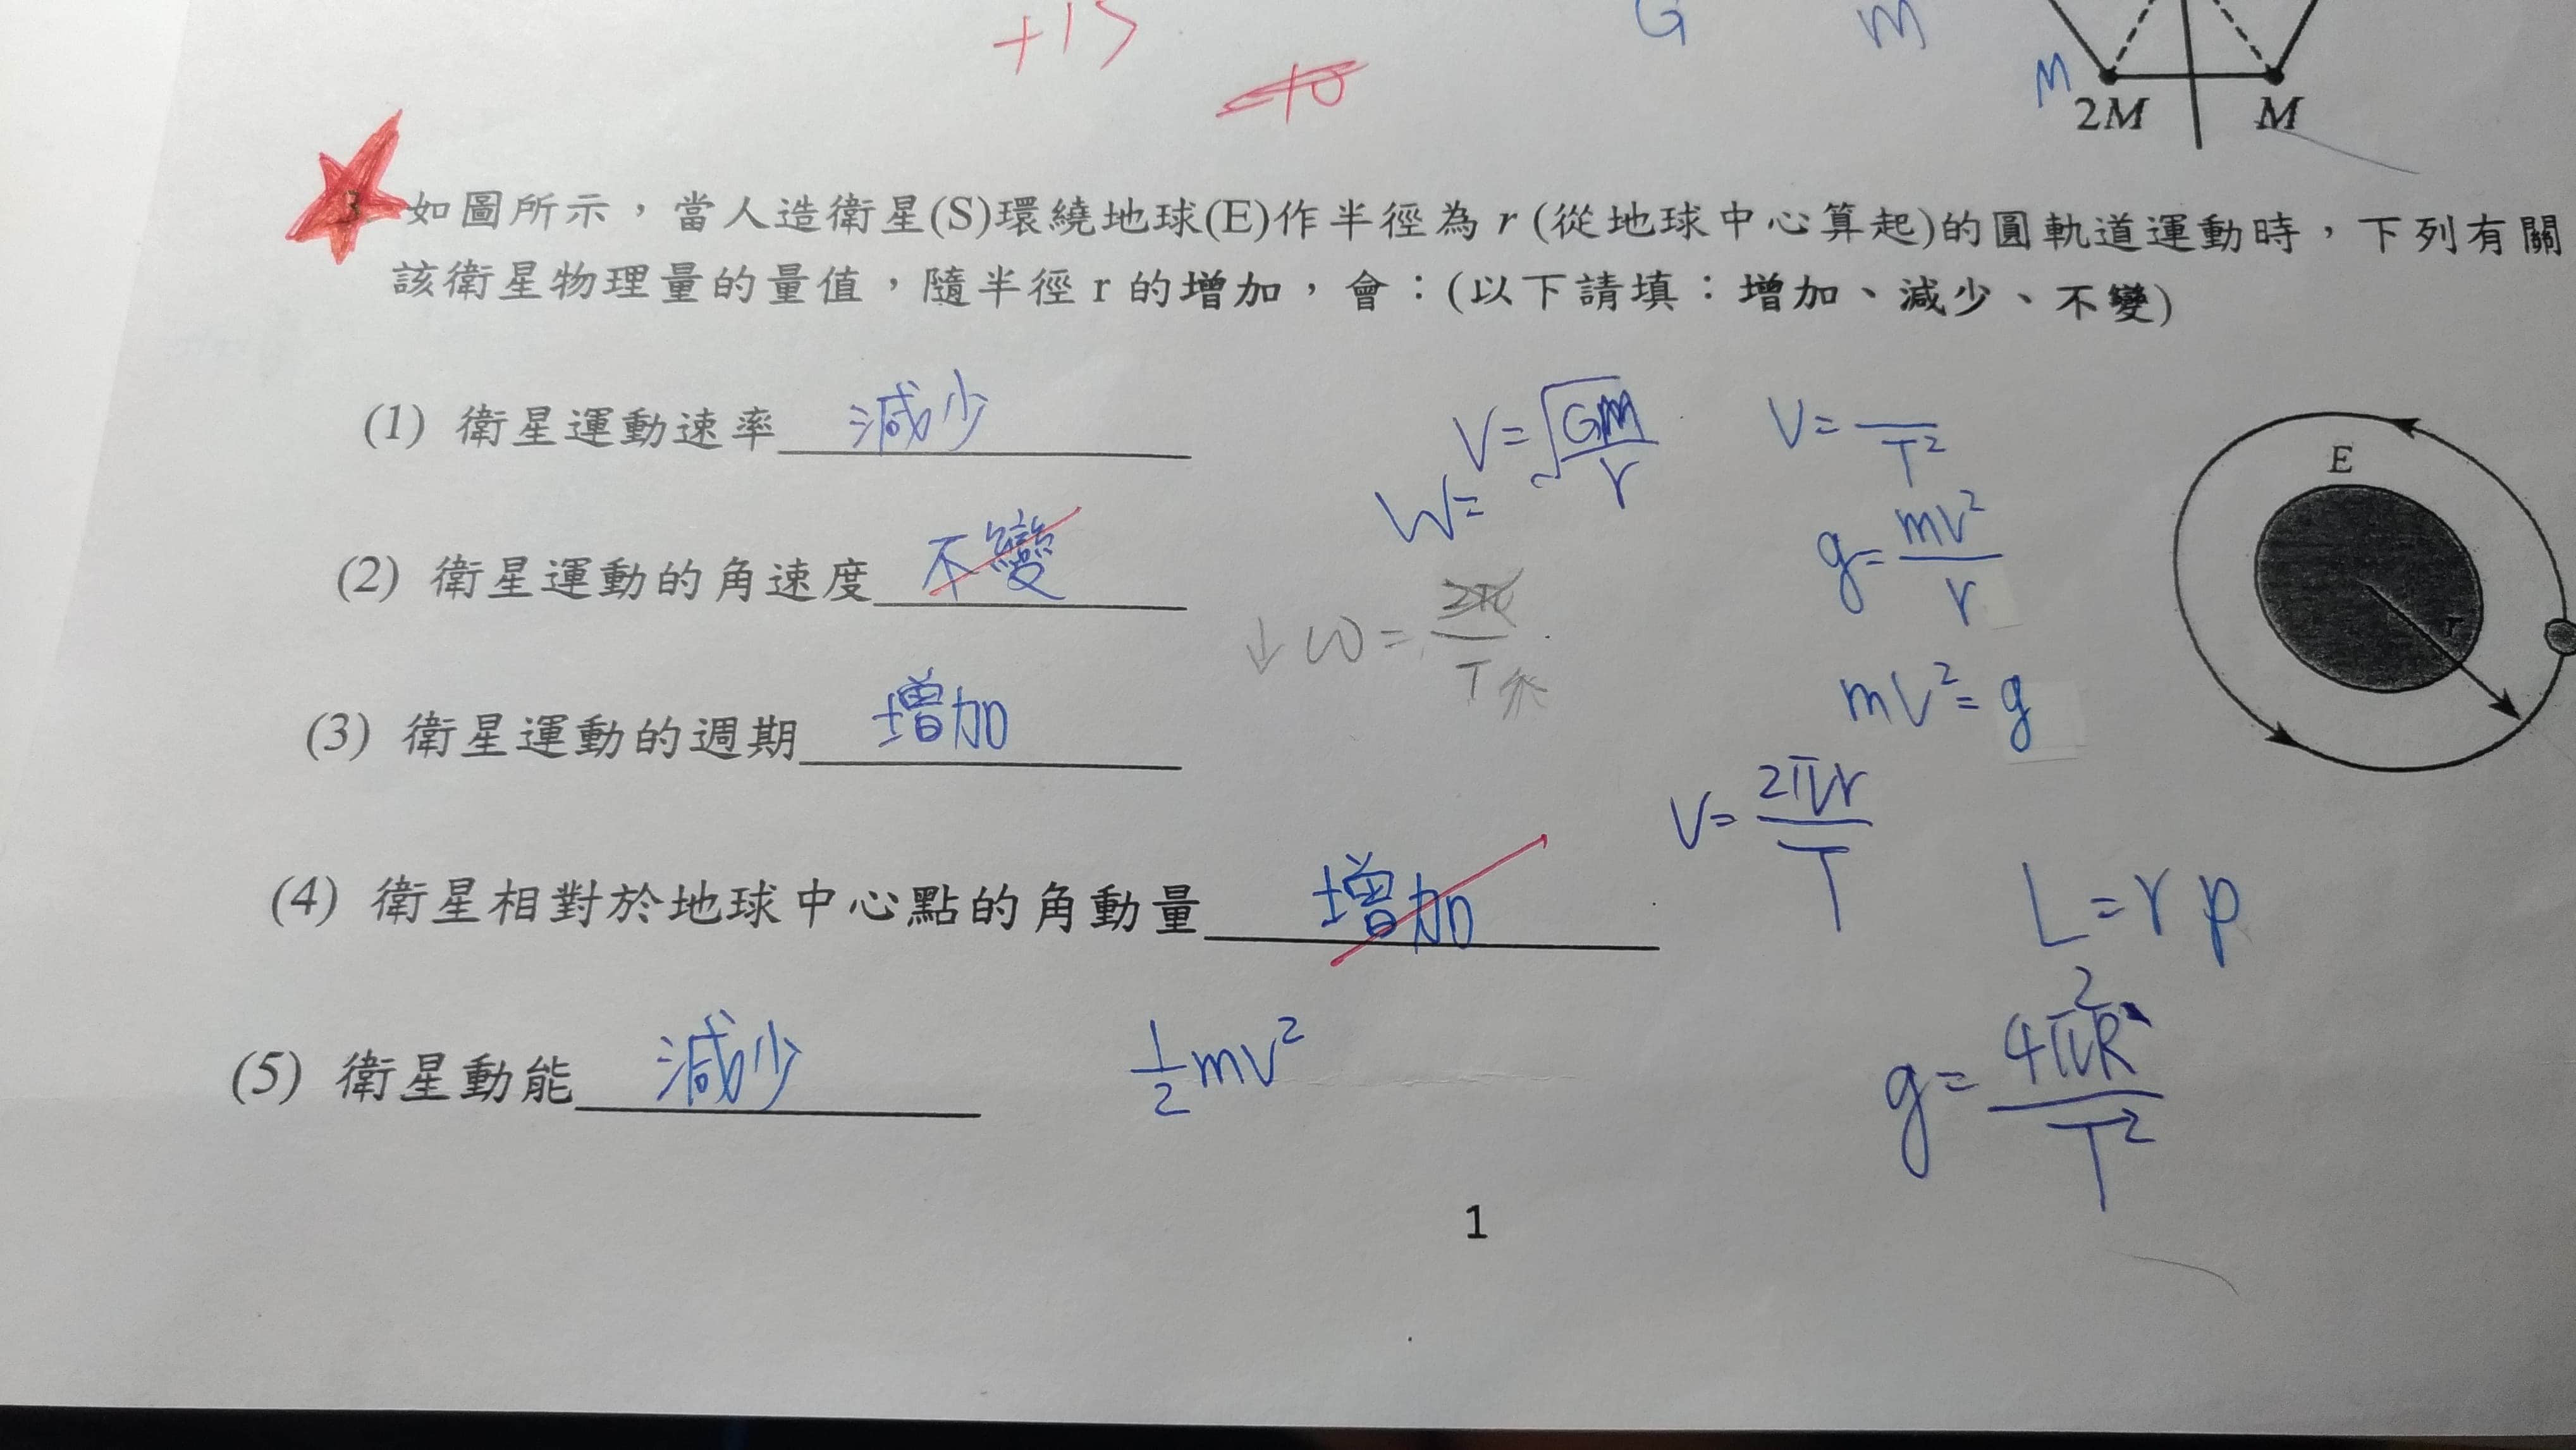 G m
M
2M M
3. 如圖所示，當人造衛星(S)環繞地球(E)作半徑為 r (從地球中心算起)的圓軌道運動時，下列有關
該衛星物理量的量值，隨半徑 r 的增加，會：(以下請填：增加、減少、不變)
(1) 衛星運動速率 減少
V=√GM/r
V= /T²
W=
E
(2) 衛星運動的角速度 不變
g= mv²/r
↓ω= 2π/T
r
(3) 衛星運動的週期 增加
mv²= g
V= 2πr/T
(4) 衛星相對於地球中心點的角動量 增加
L=r p
(5) 衛星動能 減少
1/2 mv²
g= 4π²R/T²
1